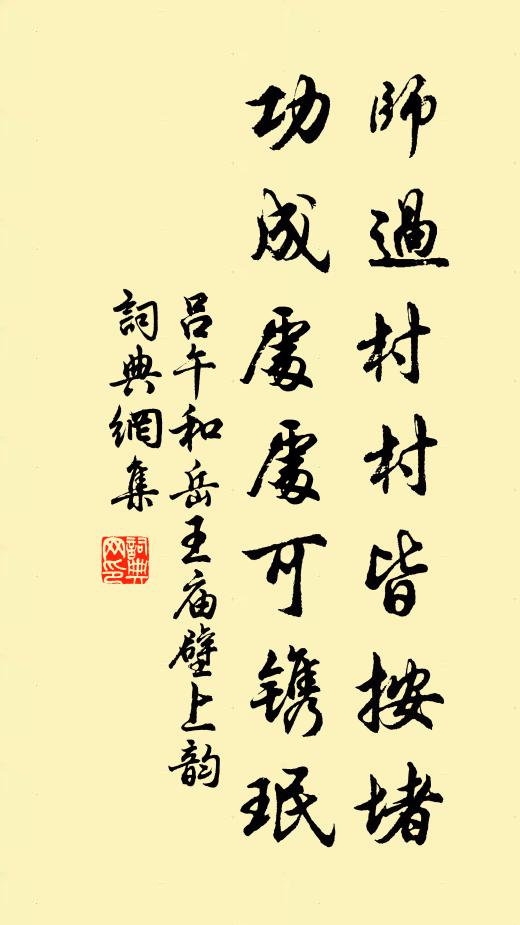 師過村村皆按堵
功成處處可鐫珉
吕午和岳王庙壁上韵
詞典網集
詞典
网印